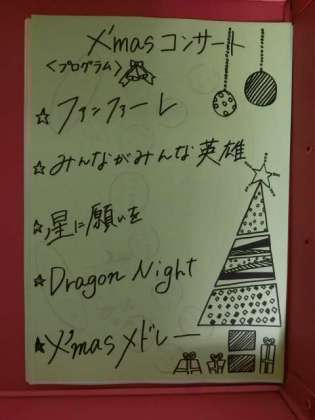 X'mas コンサート
<プログラム>
☆ファンファーレ
☆みんながみんな英雄
☆星に願いを
☆Dragon Night
★X'mas メドレー